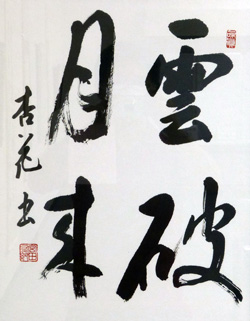 雲破
月来
杏花書